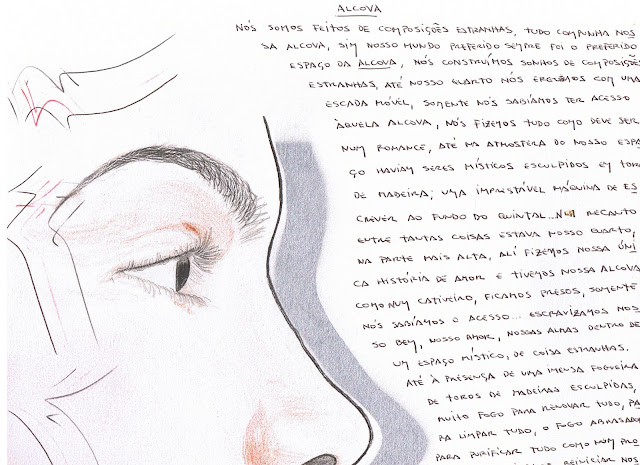 ALCOVA
NÓS SOMOS FEITOS DE COMPOSIÇÕES ESTRANHAS, TUDO COMPUNHA NOS
SA ALCOVA, SIM NOSSO MUNDO PREFERIDO SEMPRE FOI O PREFERIDO
ESPAÇO DA ALCOVA, NÓS CONSTRUÍMOS SONHOS DE COMPOSIÇÕES
ESTRANHAS, ATÉ NOSSO QUARTO NÓS ERGUEMOS COM UMA
ESCADA MÓVEL, SOMENTE NÓS SABÍAMOS TER ACESSO
ÀQUELA ALCOVA, NÓS FIZEMOS TUDO COMO DEVE SER
NUM ROMANCE, ATÉ NA ATMOSFERA DO NOSSO ESPA
ÇO HAVIAM SERES MÍSTICOS ESCULPIDOS EM TORA
DE MADEIRA; UMA IMPRESTÁVEL MÁQUINA DE ES
CREVER AO FUNDO DO QUINTAL... RECANTO
ENTRE TANTAS COISAS ESTAVA NOSSO QUARTO,
NA PARTE MAIS ALTA, ALI FIZEMOS NOSSA ÚNI
CA HISTÓRIA DE AMOR E TIVEMOS NOSSA ALCOVA
COMO NUM CATIVEIRO, FICAMOS PRESOS, SOMENTE
NÓS SABÍAMOS O ACESSO... ESCRAVIZAMOS NOS
SO BEM, NOSSO AMOR, NOSSAS ALMAS DENTRO DE
UM ESPAÇO MÍSTICO, DE COISA ESTRANHAS.
ATÉ À PRESENÇA DE UMA IMENSA FOGUEIRA
DE TOROS DE MADEIRAS ESCULPIDAS,
MUITO FOGO PARA RENOVAR TUDO, PA
RA LIMPAR TUDO, O FOGO ABRASADOR
PARA PURIFICAR TUDO COMO NUM PRO
REINICIAR NOS